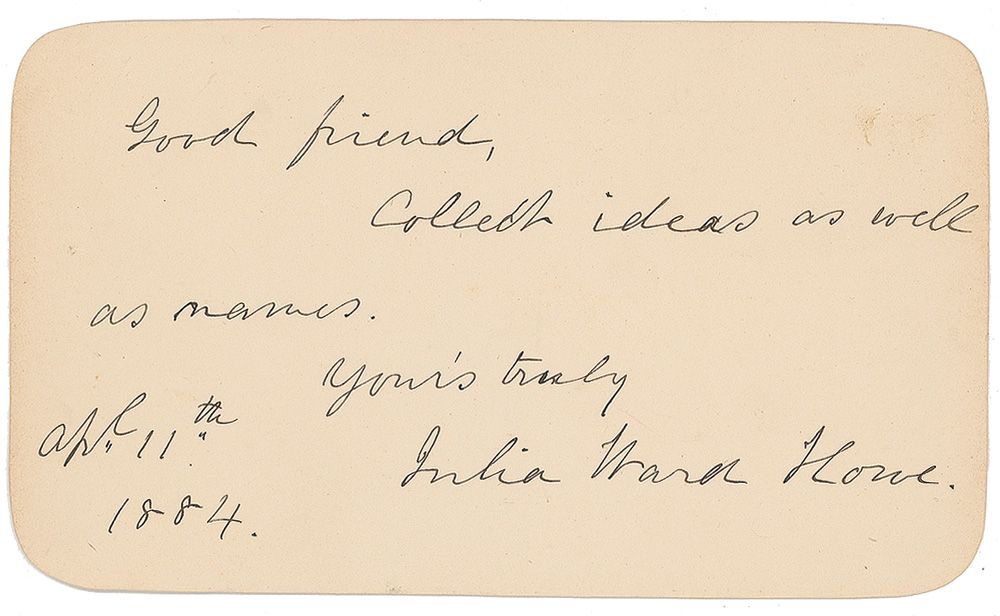 Good friend,
Collect ideas as well
as names.
Your's truly
Apl. 11th
Julia Ward Howe.
1884.